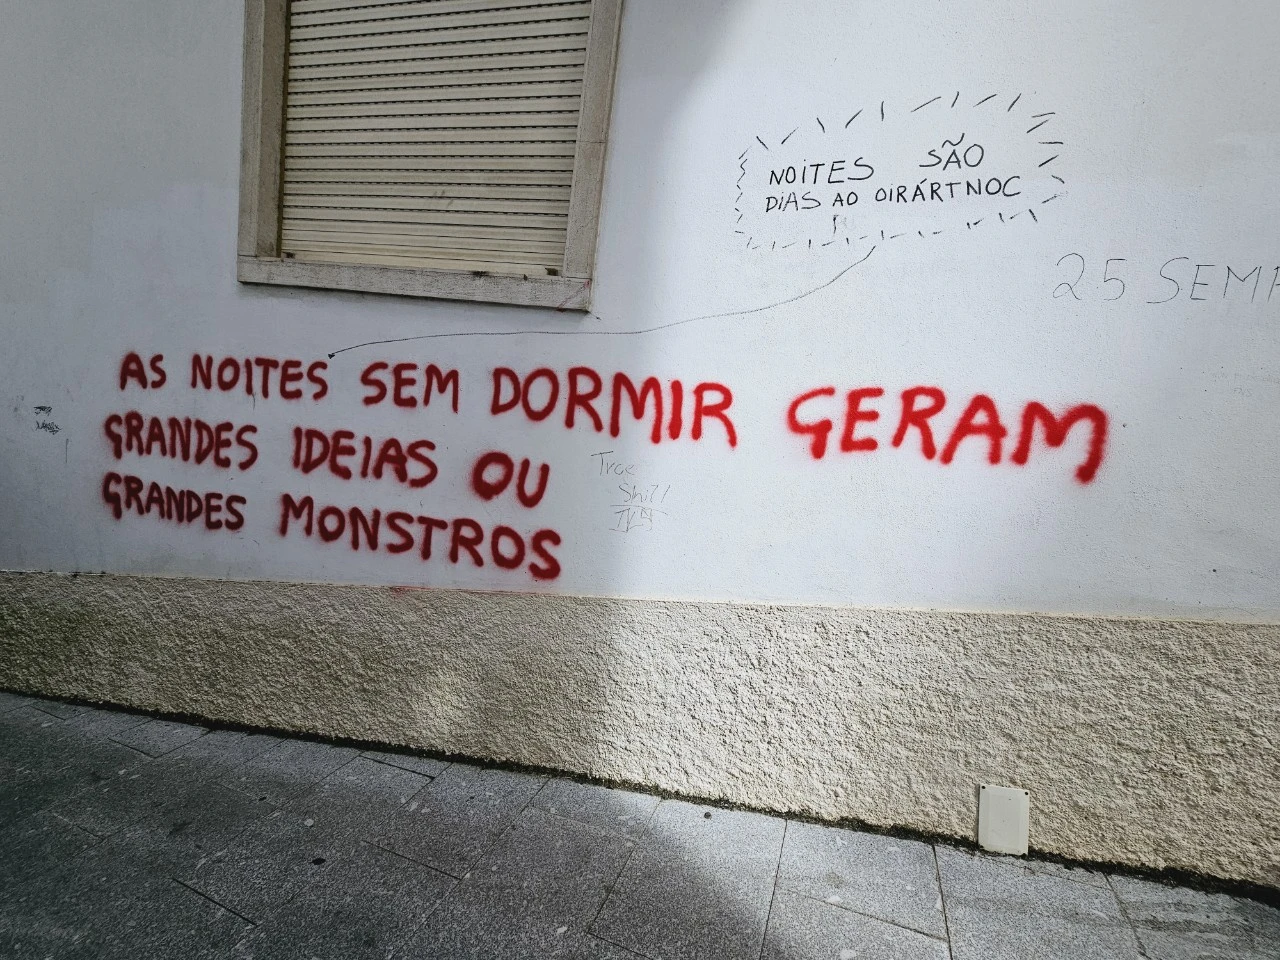 NOITES SÃO
DIAS AO OIRÁRTNOC
25 SEMP
AS NOITES SEM DORMIR GERAM
GRANDES IDEIAS OU
GRANDES MONSTROS